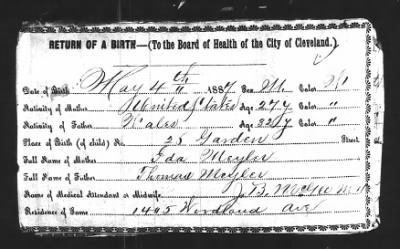 RETURN OF A BIRTH—(To the Board of Health of the City of Cleveland.)
Date of Birth May 4th 1887 Sex M. Color W
Nativity of Mother United States Age 27 y Color "
Nativity of Father Wales Age 32 y Color "
Place of Birth (of child) No. 25 Garden Street
Full Name of Mother Eda Meyler
Full Name of Father Thomas Meyler
Name of Medical Attendant or Midwife J. B. M. D.
Residence of Same 1495 Woodland ave